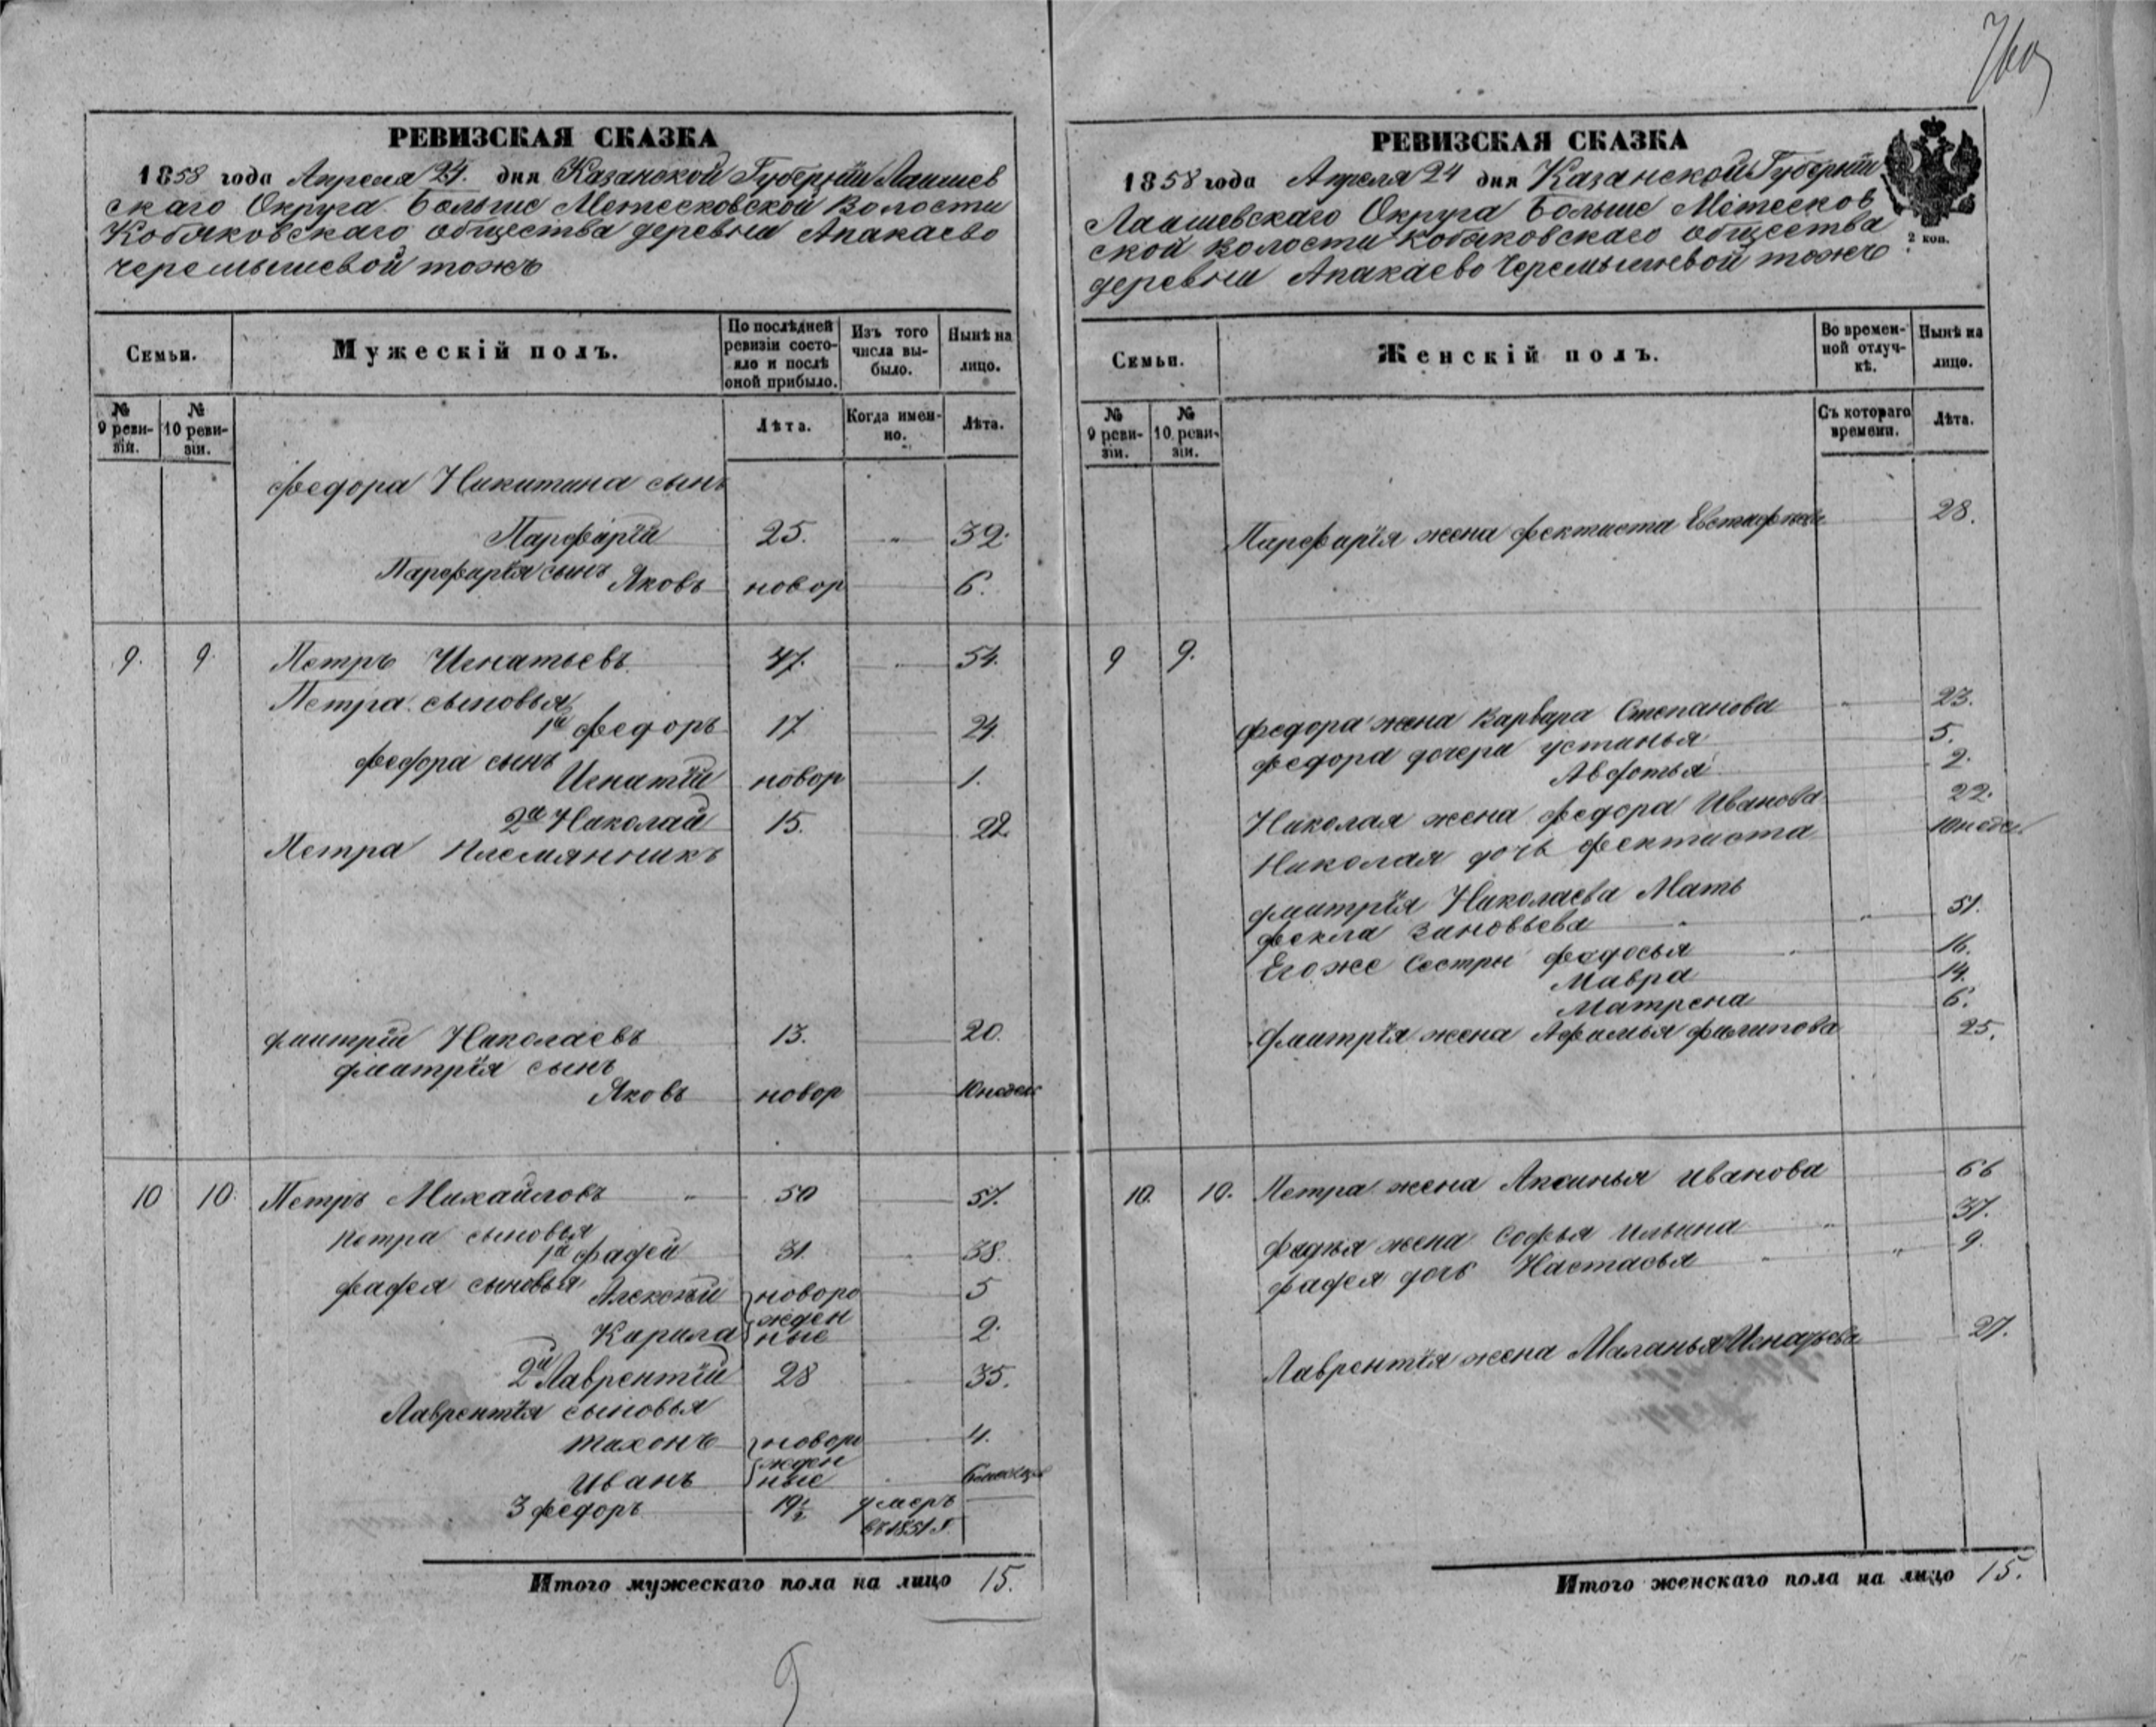 РЕВИЗСКАЯ СКАЗКА
1858 года Апреля 24. дня Казанской Губерніи Лаишев
скаго Округа Больше Метесковской Волости
Кобяковскаго общества деревни Апакаево
Черемышевой тожъ
Семьи.
Мужескій полъ.
По послѣдней ревизіи состояло и послѣ оной прибыло.
Изъ того числа выбыло.
Нынѣ на лицо.
№ 9 ревизіи.
№ 10 ревизіи.
Лѣта.
Когда именно.
Лѣта.
Федора Никитина сынъ
Парфирій 25. " 32.
Парфирія сынъ Яковъ новор 6.
9. 9. Петръ Игнатьевъ 47. " 54.
Петра сыновья
1й Федоръ 17 24
Федора сынъ
Игнатій новор 1.
2й Николай 15. 22.
Петра Племянникъ
Дмитрій Николаевъ 13. 20.
Дмитрія сынъ
Яковъ новор 10 недел
10 10. Петръ Михайловъ " 50 57.
Петра сыновья
1й Фадей 31. 38.
Фадея сыновья Алексѣй новоро 5
жден
Кирила ные 2.
2й Лаврентій 28 35.
Лаврентія сыновья
Тихонъ новоро 4.
жден
Иванъ ные
3 Федоръ 19½ умеръ
въ 1851 г.
Итого мужескаго пола на лицо 15.
9
РЕВИЗСКАЯ СКАЗКА
1858 года Апреля 24 дня Казанской Губерніи
Лаишевскаго Округа Больше Метесков
ской Волости Кобяковскаго общества
деревни Апакаево Черемышевой тожъ
2 коп.
Семьи.
Женскій полъ.
Во временной отлучкѣ.
Нынѣ на лицо.
№ 9 ревизіи.
№ 10 ревизіи.
Съ котораго времени.
Лѣта.
Парфирія жена Фектиста Евстафьева 28.
9 9.
Федора жена Варвара Степанова " 23.
Федора дочери Устинья 5.
Авдотья 2.
Николая жена Федора Иванова 22.
Николая дочь Фектиста 10 недел
Дмитрія Николаева Мать
Фекла Зиновьева " 51.
Егоже Сестры Федосья 16.
Мавра 14.
Матрена 6.
Дмитрія жена Афимья Филипова 25.
10. 10. Петра жена Аксинья Иванова 66
Фадѣя жена Софья Ильина " 37.
Фадея дочь Настасья " 9.
Лаврентія жена Маланья Игнатьева 27.
Итого женскаго пола на лицо 15.